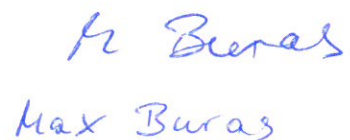 M Buras
Max Buras